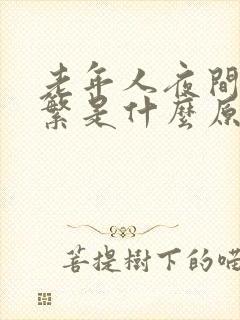 老年人夜間
繁是什麼原
菩提樹下的喵